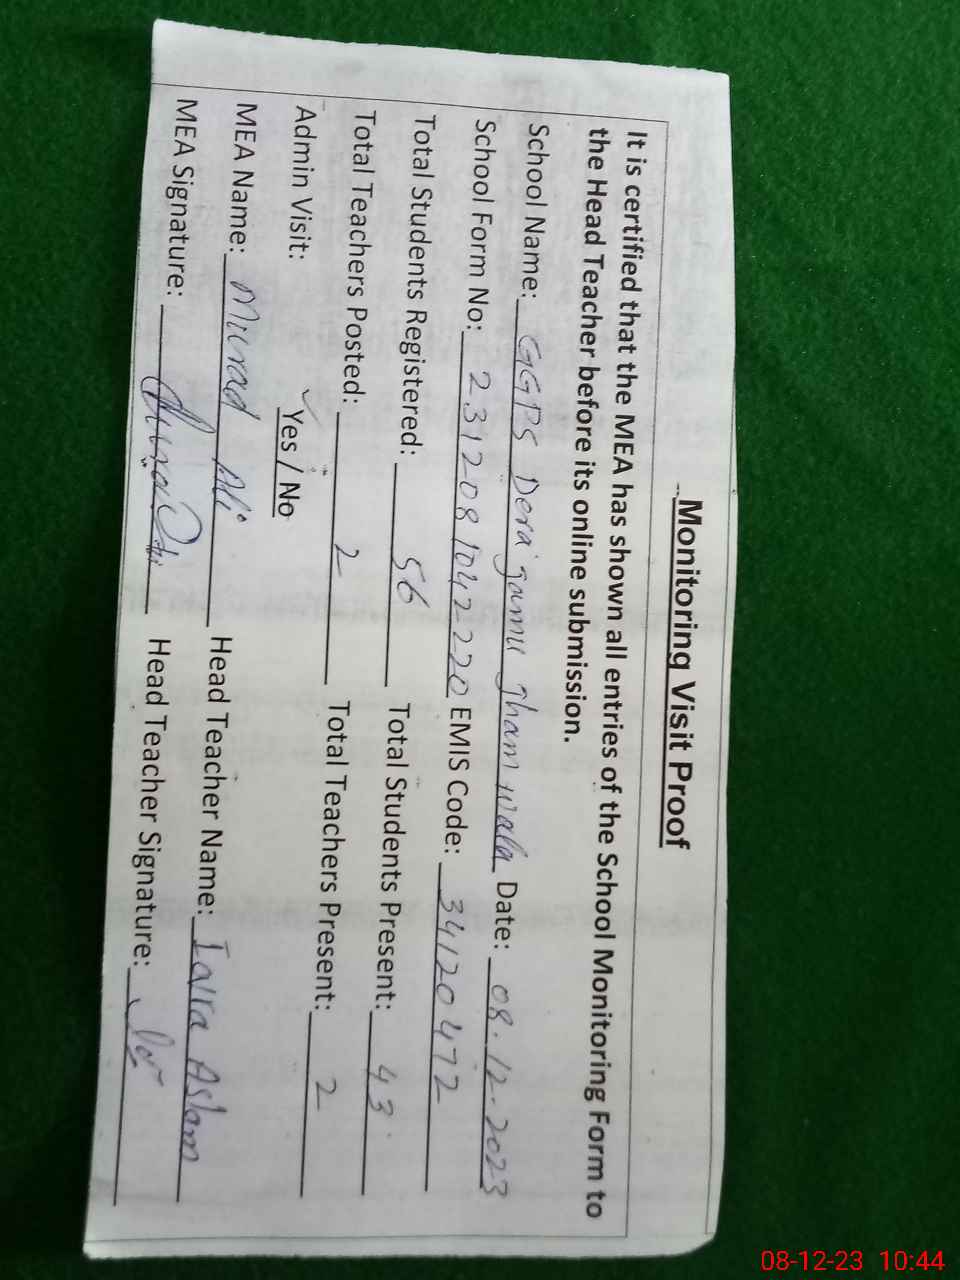 Monitoring Visit Proof
It is certified that the MEA has shown all entries of the School Monitoring Form to
the Head Teacher before its online submission.
School Name: GGPS Dera gamu gham wala Date: 08.12.2023
School Form No: 2312081042220 EMIS Code: 34120472
Total Students Registered: 56 Total Students Present: 43
Total Teachers Posted: 2 Total Teachers Present: 2
Admin Visit: ✓ Yes / No
MEA Name: Murad Ali Head Teacher Name: Iqra Aslam
MEA Signature: Head Teacher Signature:
08-12-23 10:44